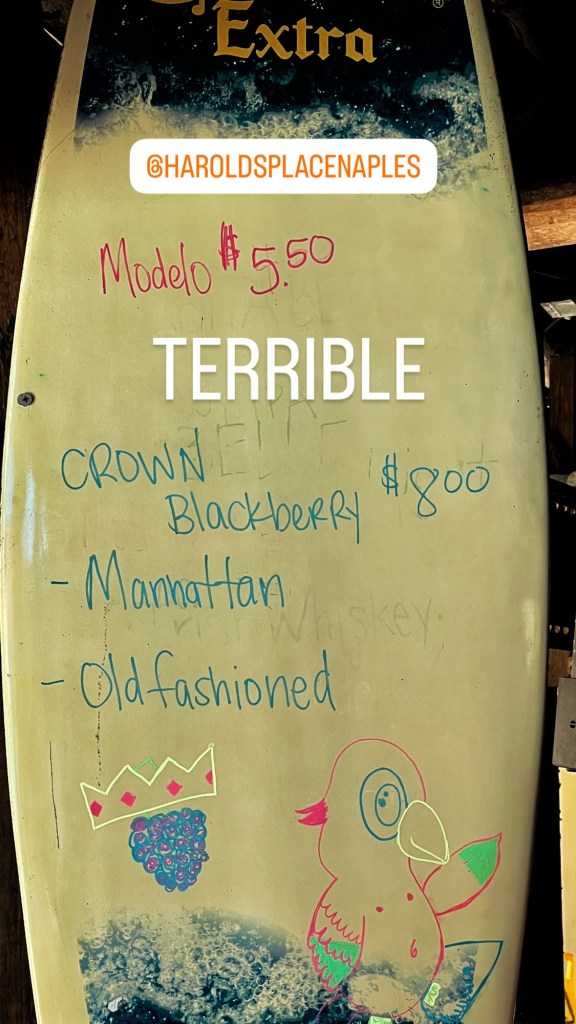 Extra
®
@HAROLDSPLACENAPLES
Modelo $5.50
TERRIBLE
CROWN $8.00
Blackberry
- Manhattan
Whiskey
- Old fashioned